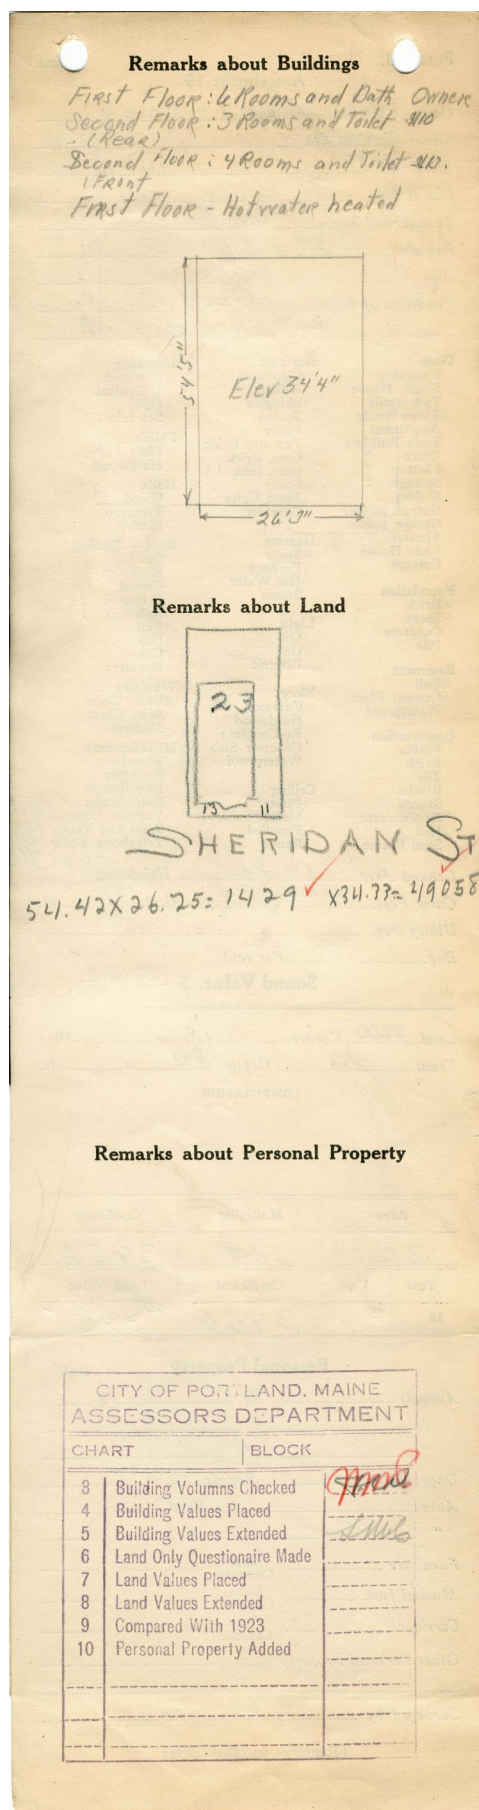 Remarks about Buildings
First Floor: 6 Rooms and Bath Owner
Second Floor: 3 Rooms and Toilet $10
- (Rear)
Second Floor: 4 Rooms and Toilet $12.
(Front
First Floor - Hot water heated
54'5"
Elev 34'4"
26'3"
Remarks about Land
23
13 11
SHERIDAN ST
54.42 X 26.25 = 1429 X 34.33 = 49058
Remarks about Personal Property
CITY OF PORTLAND, MAINE
ASSESSORS DEPARTMENT
CHART BLOCK
3 Building Volumns Checked
4 Building Values Placed
5 Building Values Extended
6 Land Only Questionaire Made
7 Land Values Placed
8 Land Values Extended
9 Compared With 1923
10 Personal Property Added